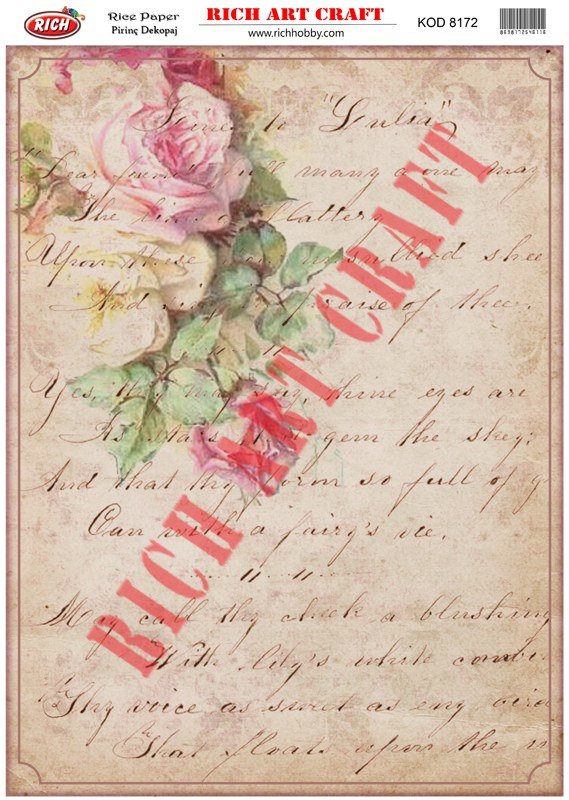 RICH
Rice Paper
Pirinç Dekopaj
RICH ART CRAFT
www.richhobby.com
KOD 8172
to "Julia"
"Dear friend many a one may
The lines of flattery
Upon these unsullied shee
And praise of thee.
Yes, they may say, thine eyes are
As stars that gem the sky;
And that thy form so full of g
Can with a fairy's vie.
May call thy cheek a blushing
With lily's white combi
Thy voice as sweet as any bird
That floats upon the
RICH ART CRAFT